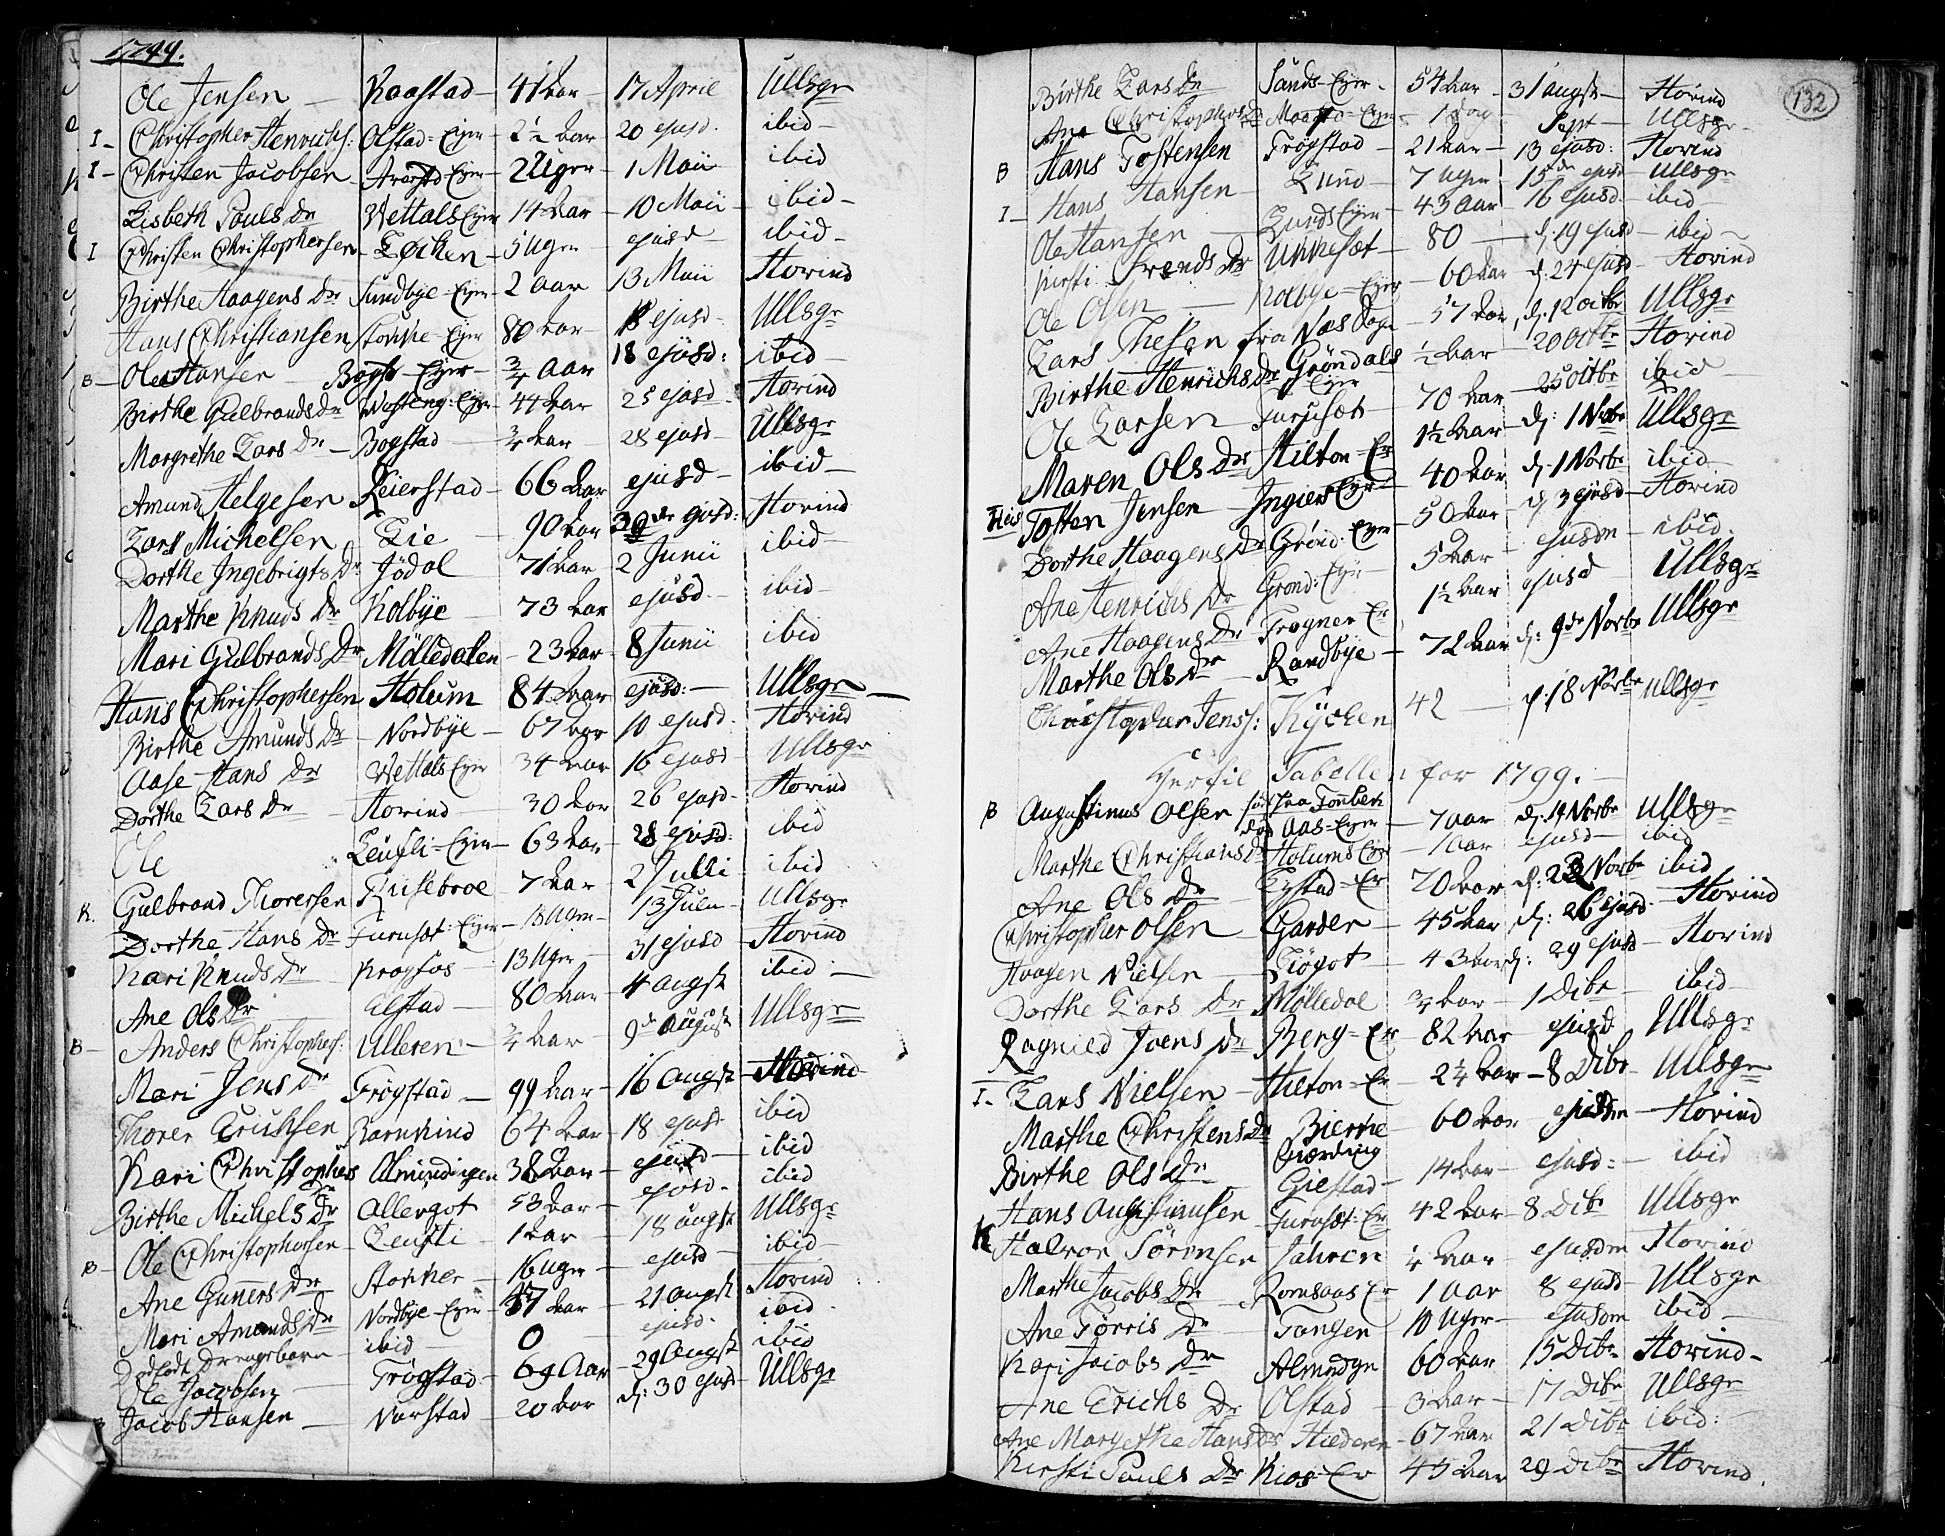 1799.
Ole Jensen — Raastad — 41 Aar — 17 April Ullsgr
I — Christopher Henrichs: Olstad-Eyer — 2½ Aar 20 ejusd. ibid —
I — Christen Jacobsen 2 Uger — 1 Maii ibid
Lisbeth Pouls Dr Wettals Eyer 14 Aar — 10 Maii — ibid —
I Christen Christophersen — Løcken — 5 Uger ejusd — ibid —
Birthe Haagens Dr Sundbye-Eyer — 2 Aar 13 Maii Hovind
Hans Christiansen Storke-Eyer 80 Aar — 18 ejusd — Ullsgr
B — Ole Hansen — Eyer — ¾ Aar 18 ejusd: ibid —
Birthe Gulbrands Dr Eyer — 44 Aar 25 ejusd — Hovind
Margrethe Lars Dr — Bogstad — ¾ Aar — 28 ejusd — Ullsgr
Amund Helgesen Leierstad — 66 Aar ejusd — ibid —
Lars Michelsen Lie — 90 Aar 30 ejusd: Hovind
Dorthe Ingebrigts Dr Jødal 71 Aar — 2 Junii ibid —
Marthe Knuds Dr Kolbye — 73 Aar ejusd — ibid —
Mari Gulbrands Dr Mölledalen — 23 Aar — 8 Junii ibid
Hans Christophersen Holum — 84 Aar ejusd: — Ullsgr —
Birthe Amunds Dr — Nordbye — 67 Aar 10 ejusd. Hovind
Aase Hans Dr Wettals Eyer 34 Aar 16 ejusd — Ullsgr
Dorthe Lars Dr — Hovind — 30 Aar 26 ejusd — Hovind
Ole Eyer — 63 Aar — 28 ejusd: ibid
K. Gulbrand Thoresen Risebroe — 7 Aar — 2 Julli ibid —
Dorthe Hans Dr Furusæt-Eyer — 13 Julii — Ullsgr
Kari Knuds Dr Krogfos — 13 Uger — 31 ejusd — Hovind
Ane Ols Dr — Elstad — 80 Aar — 4 Augst ibid —
B — Anders Christophers: Ulleren — ¾ Aar — 9de August Ullsgr
Mari Jens Dr Frogstad — 99 Aar — 16 Augst — Hovind
Thorer Erichsen Barnkind 64 Aar — 18 ejusd ibid
Kari Christophers Dr Almindingen 38 Aar — ejusd — ibid
Birthe Michels Dr Allergot — 53 Aar — ejusd — ibid
B — Ole Christophersen — 1 Aar — 18 Augst Ullsgr
Ane Guners Dr Stokker — 16 Uger — ejusd — ibid —
Mari Amunds Dr Nordbye-Eyer — 47 Aar — 21 Augst Hovind
Dødfødt Drengebarn — ibid — 0 ejusd — ibid.
Ole Jacobsen — Frogstad — 69 Aar — 29 Augst ibid
Jacob Hansen — Norstad — 20 Aar d: 30 ejusd — Ullsgr
132
Birthe Lars Dr Sands-Eyer. — 54 Aar — 31 Augst — Hovind
Ane Christophers Dr — 1 dag — Sept — Ullsgr
B Hans Tostensen Frogstad — 21 Aar — 13 ejusd: Hovind
I — Hans Hansen — Lund — 7 Uger 15de ejusd Ullsgr
Ole Hansen — Lunds Eyer — 43 Aar 16 ejusd — ibid —
Kirsti Trends Dr Ukkesæt — 80 — d: 19 ejusd — ibid —
Ole Olsen — Kolbye-Eyer — 60 Aar d: 24 ejusd — Hovind
Lars Thesen fra Næs Sogn — 57 Aar d: 12 Octbr Ullsgr
Birthe Henrichs Dr Grøndals Eyer ½ Aar — 20 Octbr Hovind
Ole Larsen Furusæt — 70 Aar — 25 Octbr ibid —
Maren Ols Dr Hilton-Er 1½ Aar — d: 1 Novbr Ullsgr
Tosten Jensen — Ingiers Eyer — 40 Aar d. 1 Novbr ibid —
Dorthe Haagens Dr Grønd: Eyer — 50 Aar — d. 3 ejusd — Hovind
Ane Henrichs Dr Grønd: Eyer 5 Aar — ejusdm — ibid.
Ane Haagens Dr Frogner Er 1½ Aar ejusd Ullsgr
Marthe Ols Dr — Randbye — 72 Aar d: 9de Novbr Ullsgr
Christopher Jenss: Kycken 42 — d: 18 Novbr Ullsgr
Hertil Tabellen for 1799. —
B Augustinus Olsen Aas-Eyer — 7 Aar d: 19 Novbr Ullsgr
Marthe Christians Dr Holums Eyr — 1 Aar ejusd — ibid
Ane Ols Dr — Lystad-Er 70 Aar d: 23 Novbr ibid
Christopher Olsen Garder — 45 Aar d: 26 ejusd — Hovind
Haagen Nielsen — Liøgot — 43 Aar d: 29 ejusd — Hovind
Dorthe Lars Dr Mölledal ¾ Aar — 1 Dibr — ibid —
Ragnild Joens Dr Berg-Er — 82 Aar — ejusd Ullsgr
I — Lars Nielsen — Hilton-Er 2¼ Aar — 8 Dibr — Ullsgr
Marthe Christens Dr Bierke — 60 Aar ejusdm — Hovind
Birthe Ols Dr — Giestad — 14 Aar — ejusd: — ibid
Hans Augustinusen Furusæt-Er 42 Aar — 8 Dibr Ullsgr
K Halvor Sørensen Jahren ¼ Aar — ejusdm Hovind
Marthe Jacobs Dr Romsaas Er 1 Aar 8 ejusd — Ullsgr
Ane Torris Dr — Tangen — 10 Uger — ejusdm ibid —
Kari Jacobs Dr Almindgn 60 Aar 15 Dibr — Hovind —
Ane Erichs Dr Olstad — 3 Aar — 17 Dibr Ullsgr
Ane Margethe Hans Dr Hiederen — 67 Aar 21 Dibr ibid:
Kirsti Pouls Dr Kios-Er 45 Aar 29 Dibr Hovind.